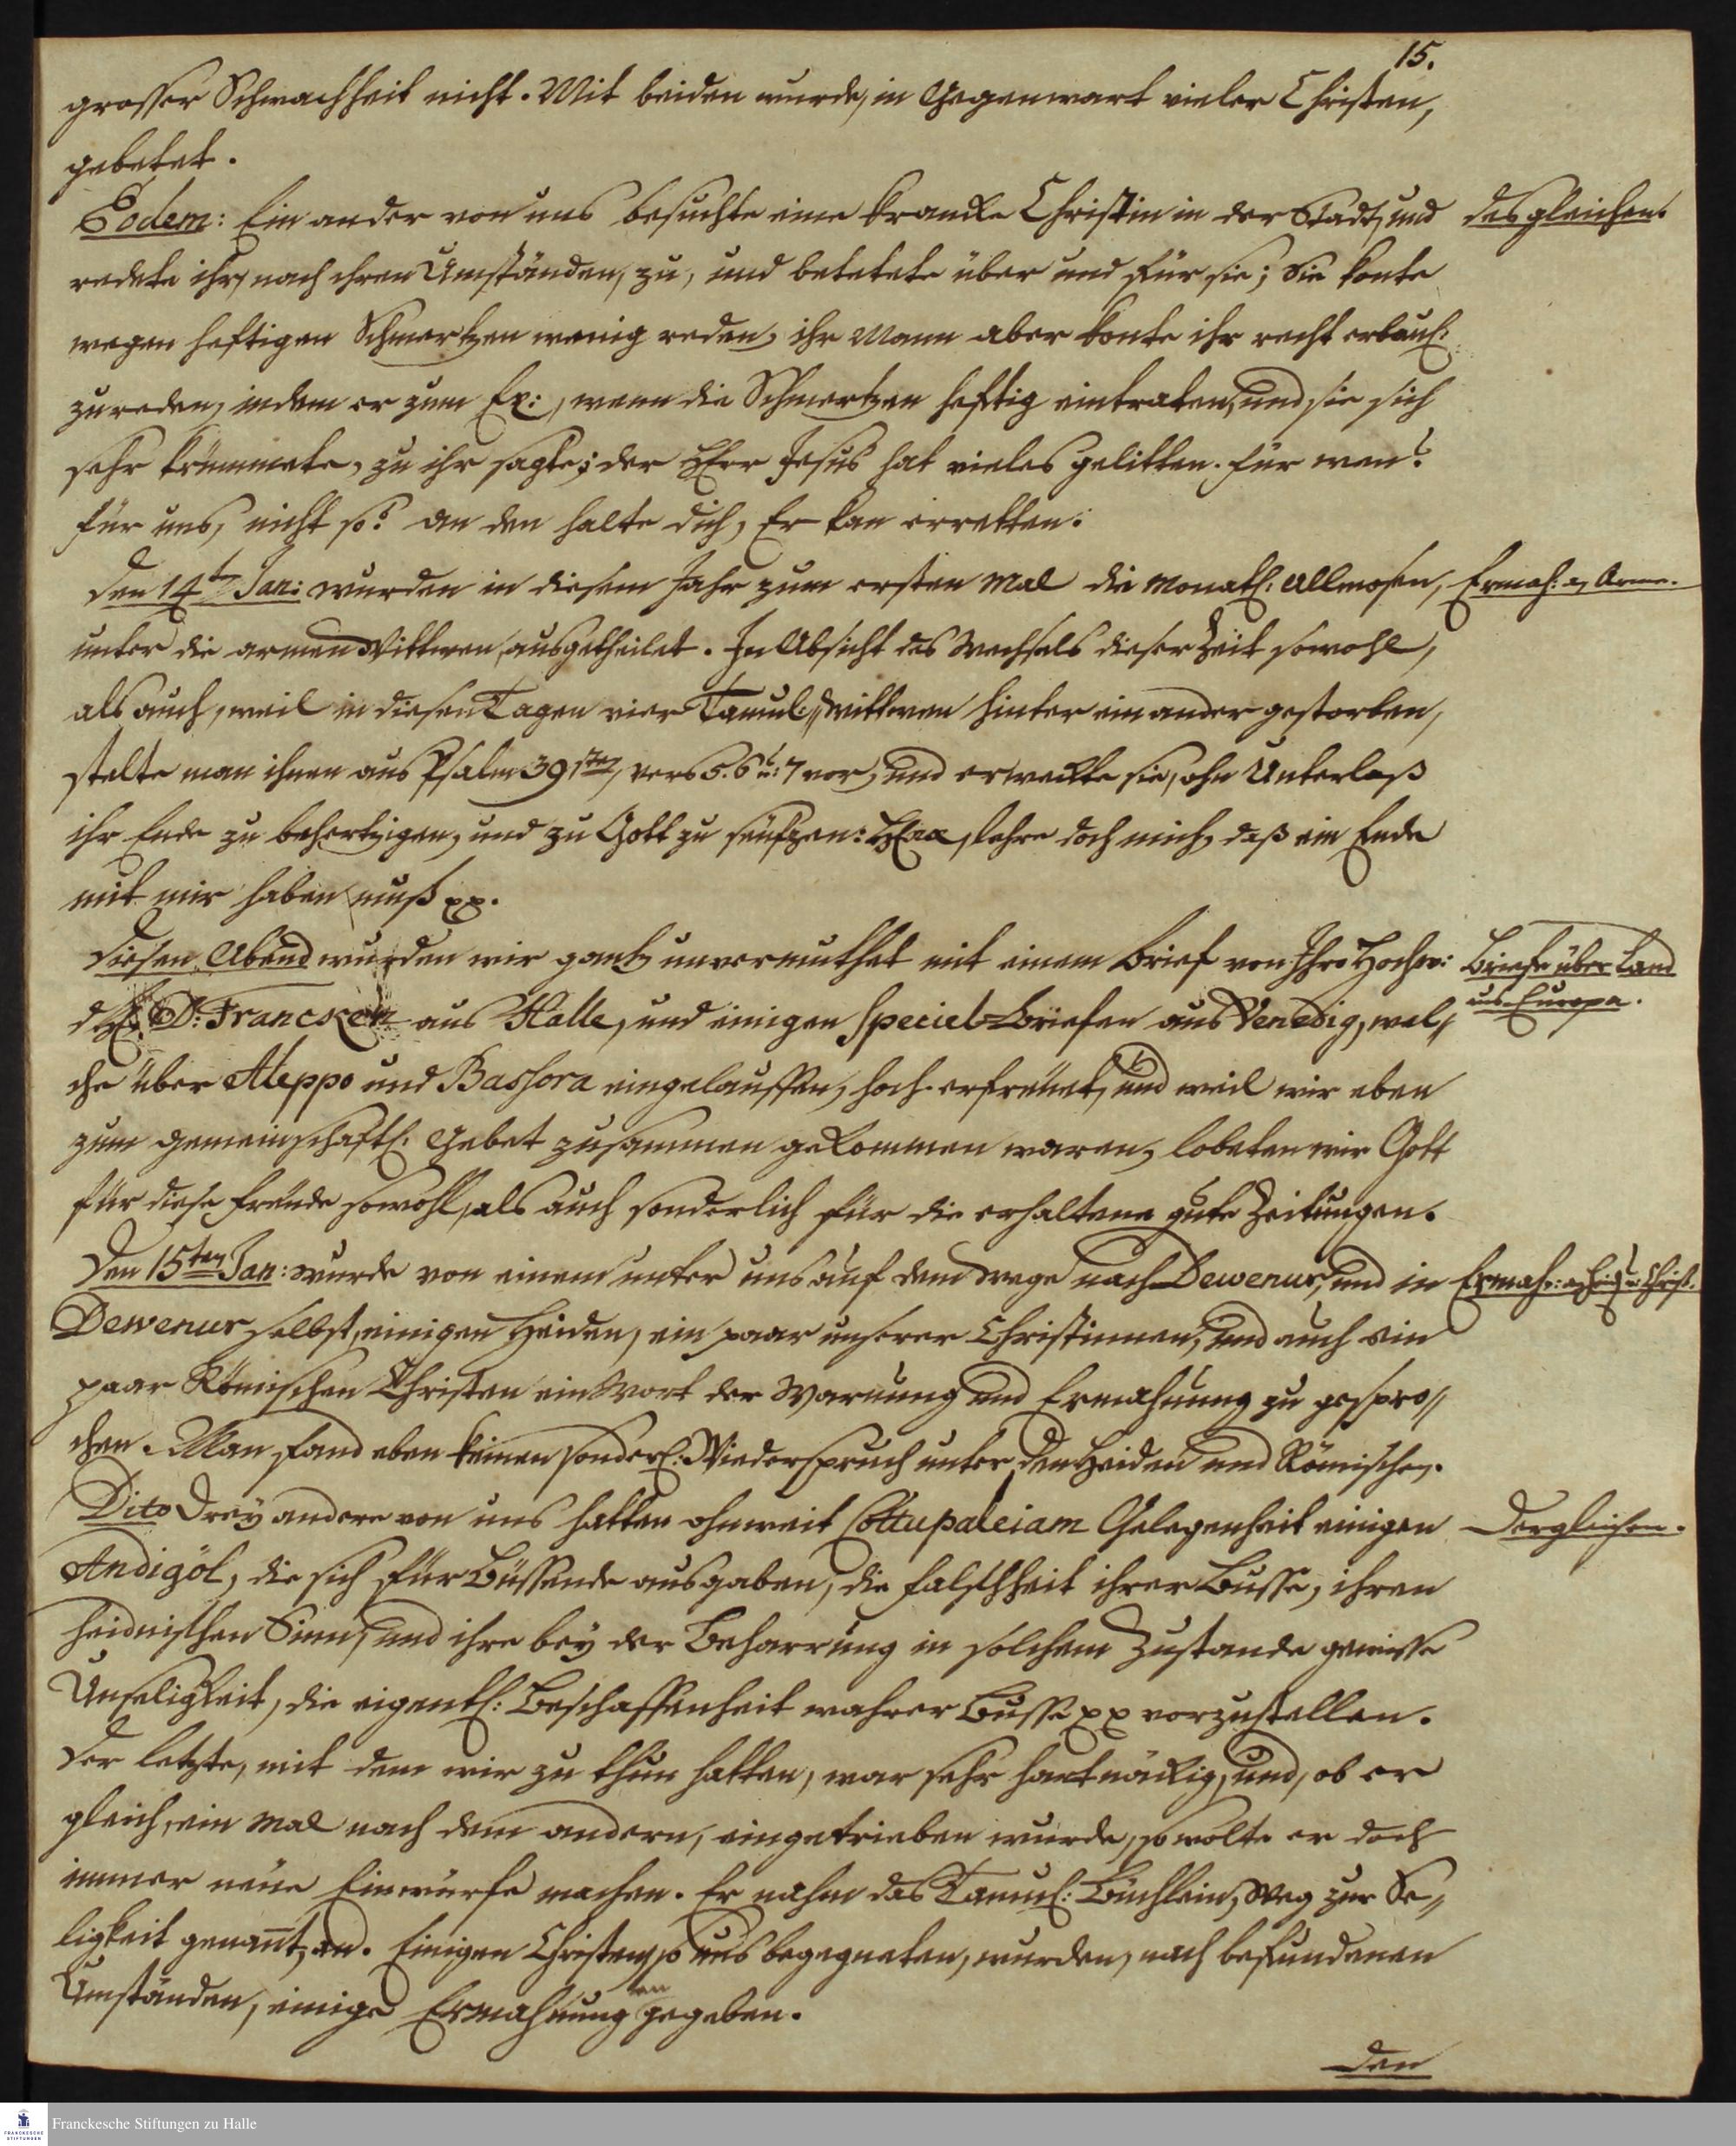 15.
grosser Schwachheit nicht. Mit beiden wurde, in Gegenwart vieler Christen,
gebetet.
Eodem: Ein ander von uns besuchte eine krancke Christin in der Stadt, und
desgleichen.
redete ihr, nach ihren Umständen, zu, und betete über und für sie; Sie konte
wegen heftigen Schmertzen wenig reden, ihr Mann aber konte ihr recht erbaul:
zureden, indem er zum Ex:, wenn die Schmertzen heftig eintraten, und sie sich
sehr krümmete, zu ihr sagte; der HErr Jesus hat vieles gelitten. für wen?
für uns, nicht so? an den halte dich, Er kan erretten.
Den 14t Jan: wurden in diesem Jahr zum ersten Mal die Monatl: Allmosen,
Ermah: an Arme.
unter die armen Wittwen, ausgetheilet. In Absicht des Wechsels dieser Zeit sowohl,
als auch, weil in diesen Tagen vier Tamul: Wittwen hinter einander gestorben,
stelte man ihnen aus Psalm 39sten, vers 5. 6 u: 7 vor, und erweckte sie, ohn Unterlaß
ihr Ende zu behertzigen, und zu Gott zu seufzen: HErr, lehre doch mich, daß ein Ende
mit mir haben muß pp.
Diesen Abend wurden wir gantz unvermuthet mit einem Brief von Ihro Hochw:
Briefe über Land
aus Europa.
d H. D: Francken aus Halle, und einigen Speciel-Briefen aus Venedig, wel„
che über Aleppo und Bassora eingelauffen, hoch erfreuet, und weil wir eben
zum gemeinschaftl: Gebet zusammen gekommen waren, lobeten wir Gott
für diese Freude sowohl, als auch sonderlich für die erhaltene gute Zeitungen.
Den 15ten Jan: wurde von einem unter uns auf dem Wege nach Dewenur, und in
Ermah: an Heid: u: Christ.
Dewenur selbst, einigen Heiden, ein paar unserer Christinnen, und auch ein
paar Römischen Christen ein Wort der Warnung und Ermahnung zu gespro„
chen. Man fand eben keinen sonderl: Wiederspruch unter den Heiden und Römischen.
Dito Drey andere von uns hatten ohnweit Cottupaleiam Gelegenheit einigen
Dergleichen.
Andigöl, die sich für Büssende ausgaben, die Falschheit ihrer Busse, ihren
heidnischen Sinn, und ihre bey der Beharrung in solchem Zustande gewisse
Unseligkeit, die eigentl: Beschaffenheit wahrer Busse pp vorzustellen.
Der letzte, mit dem wir zu thun hatten, war sehr hartnäckig, und, ob er
gleich, ein Mal nach dem andern, eingetrieben wurde, so wolte er doch
immer neue Einwürfe machen. Er nahm das Tamul: Büchlein, Weg zur Se„
ligkeit genannt, an. Einigen Christen, so uns begegneten, wurden, nach befundenen
Umständen, einige Ermahnungen gegeben.
Den
Franckesche Stiftungen zu Halle
FRANCKESCHE STIFTUNGEN